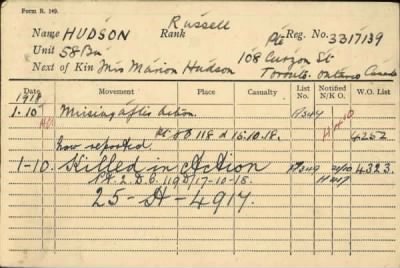 Form R. 149.
Name HUDSON Russell Rank Pte Reg. No. 3317139
Unit 58 Bn 108 Curzon St
Next of Kin Mrs Marion Hudson Toronto. Ontario Canada
Date Movement Place Casualty List No. Notified N/K O. W.O. List
1918
1-10 Missing after Action. A347 4252
Pt II O 118 d 15.10.18.
now reported.
1-10. Killed in Action A349 21/10 4323.
Pt. 2. D.O. 119 d/17-10-18. A417
25-A-4917.